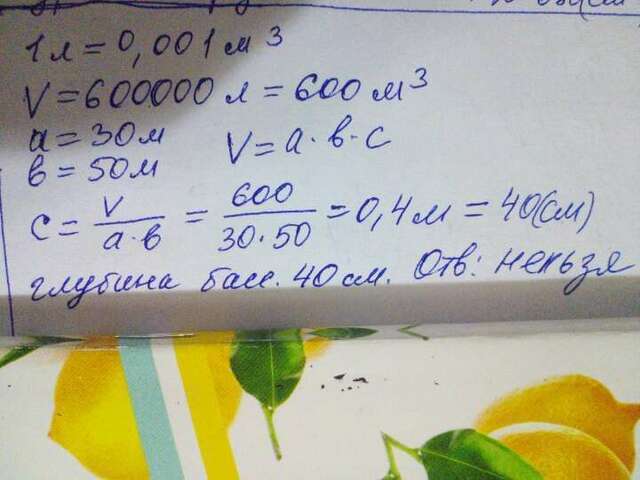 1 л = 0,001 м³
V = 600000 л = 600 м³
a = 30 м V = a · в · c
в = 50 м
c = V / a · в = 600 / 30 · 50 = 0,4 м = 40 (см)
глубина басс. 40 см. Отв: нельзя